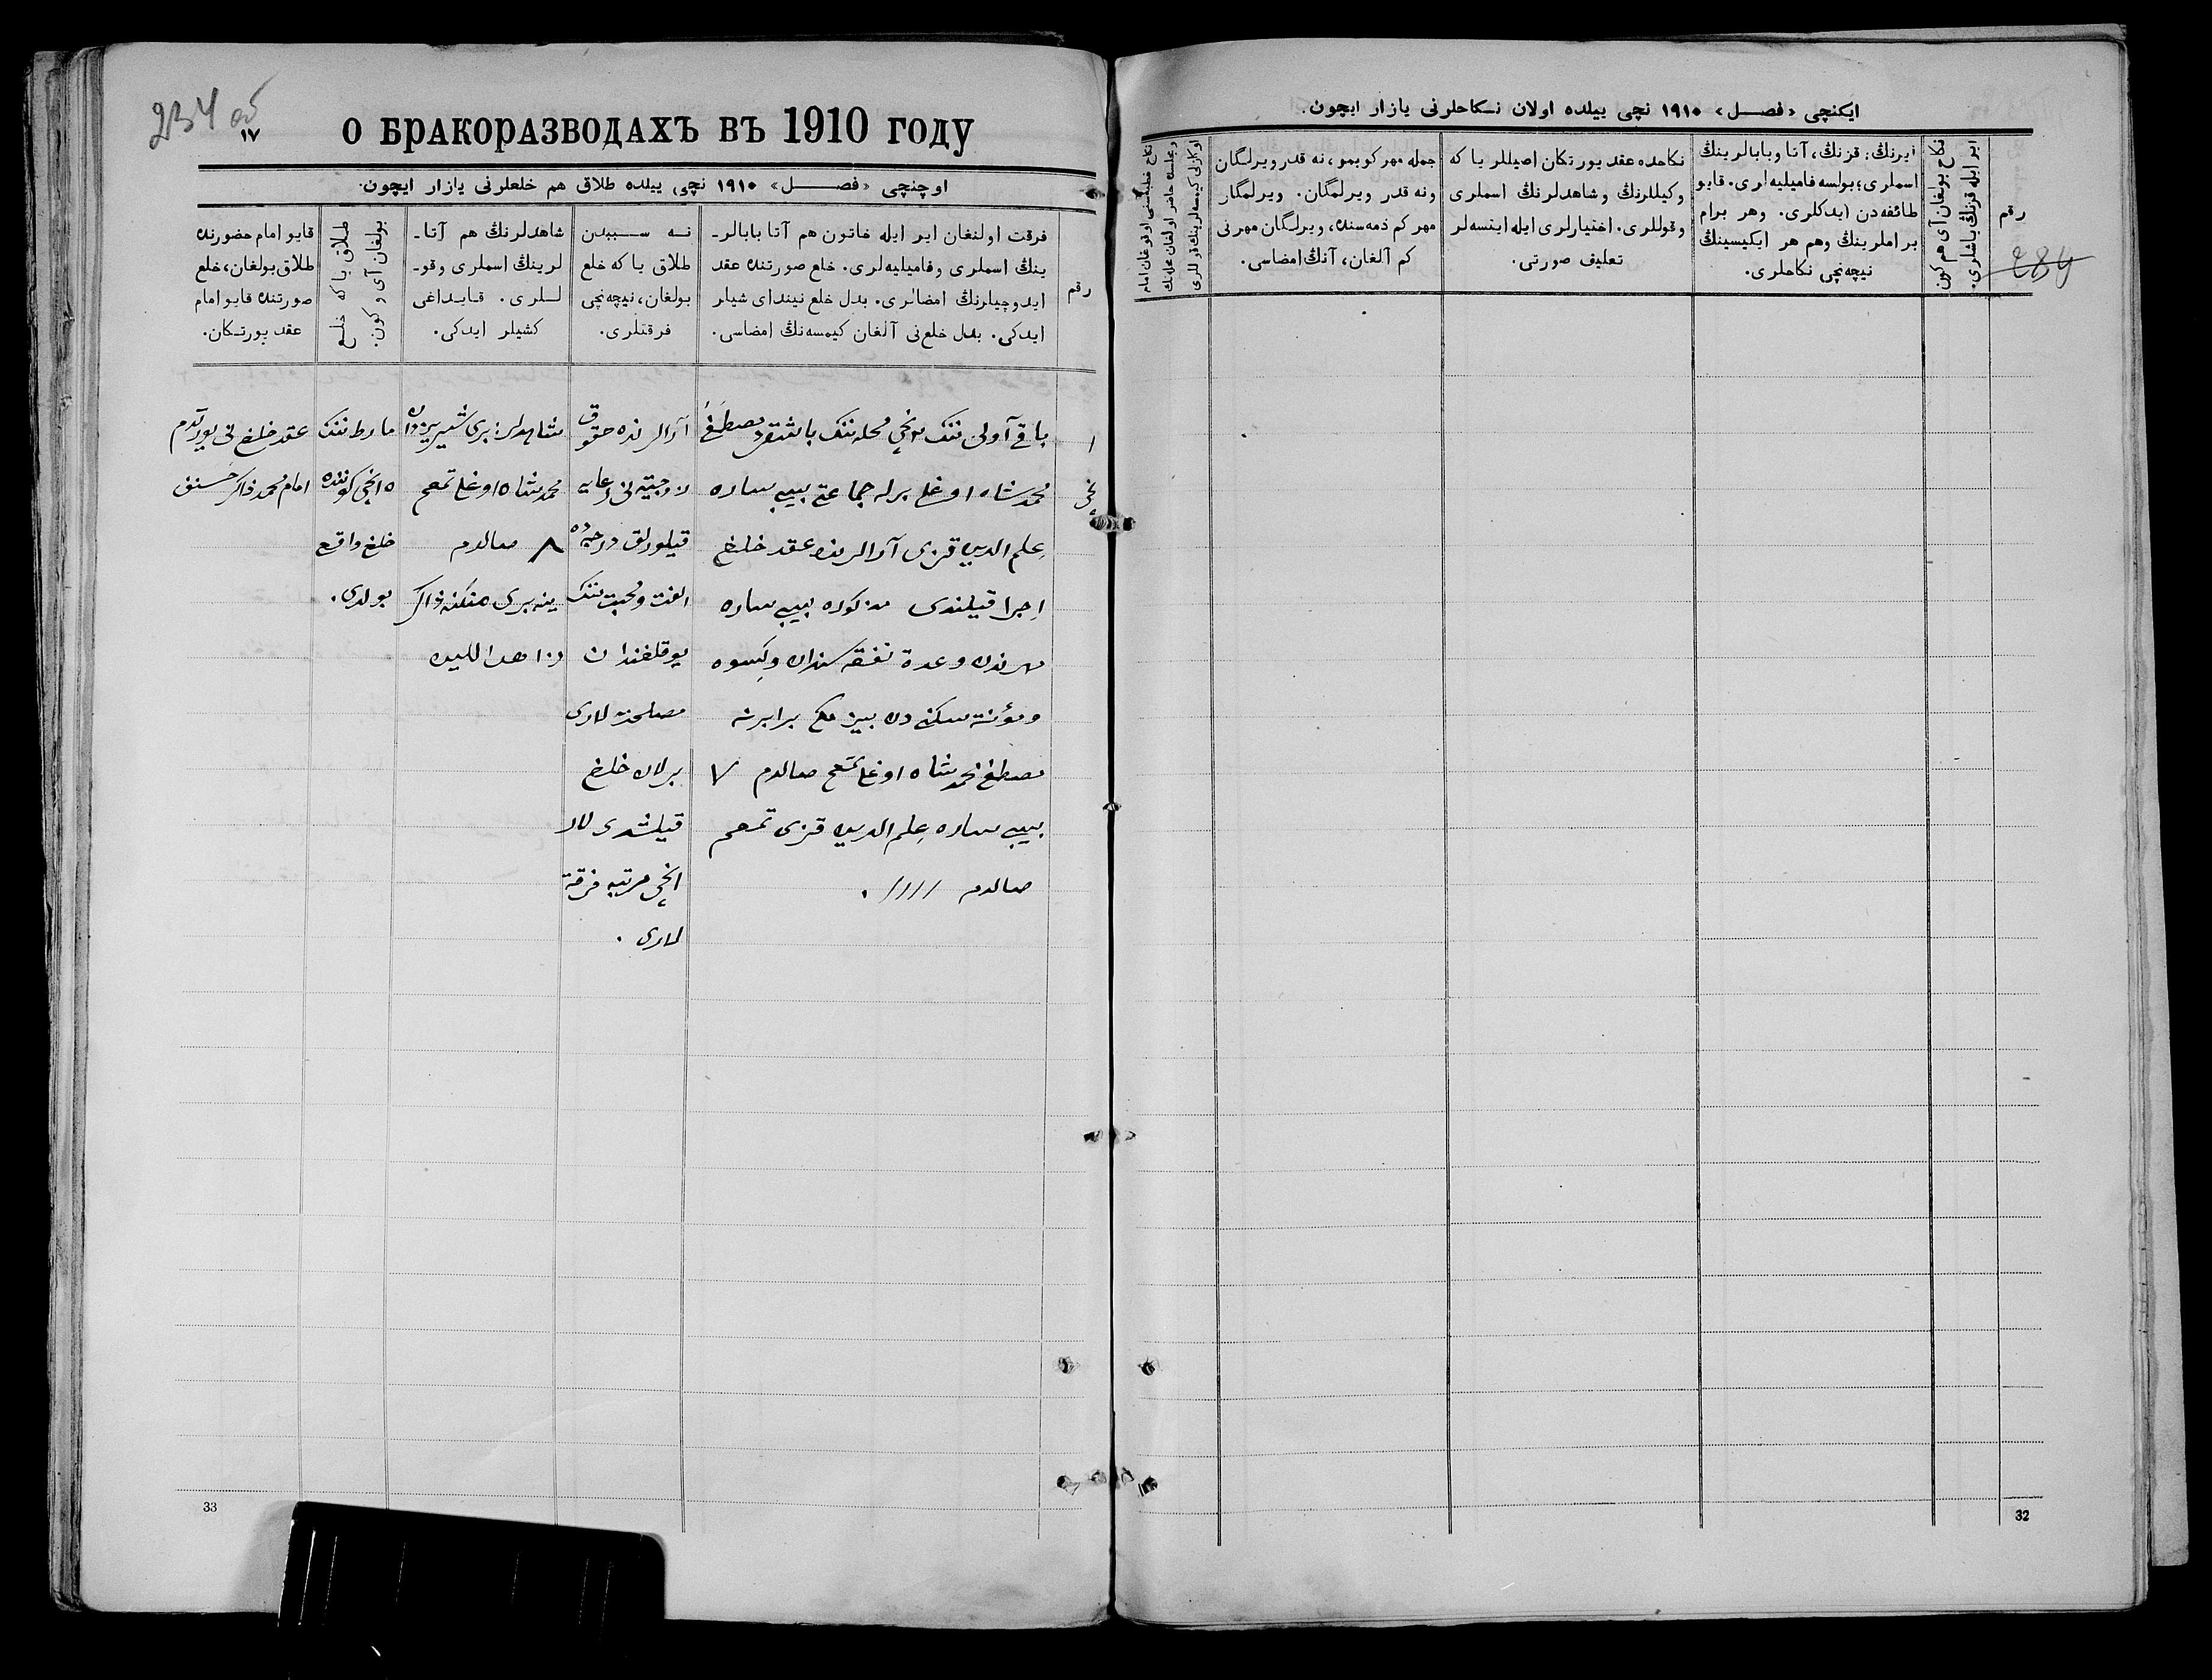 234 об
١٧
О БРАКОРАЗВОДАХЪ ВЪ 1910 ГОДУ
اوچنچی «فصل» ١٩١٠ نچی ییلده طلاق هم خلعلرنی یازار ایچون.
رقم
فرقت اولنغان ایر ایله خاتون هم آتا بابالر-
ینڭ اسملری وفامیلیه‌لری. خلع صورتنده عقد
ایدوچیلرنڭ امضالری. بدل خلع نیندای شیلر
ایدکی. بدل خلع‌نی آلغان کیمسه‌نڭ امضاسی.
نه سببدن
طلاق یا که خلع
بولغان، نیچه‌نچی
فرقتلری.
شاهدلرنڭ هم آتا-
لرینڭ اسملری وقو-
للری. قایداغی
کشیلر ایدکی.
طلاق یا که خلع
بولغان آی و کون.
قایو امام حضورنده
طلاق بولغان، خلع
صورتنده قایو امام
عقد یورتکان.
١
نچی
باقی آولی ننك نچی محله ننك باشقرد مصطفی
محمدشاه اوغلی برله جماعتی بیبی ساره
علم الدین قزی آرالرنده عقد خلع
اجرا قیلندی مذکوره بیبی ساره
مهرندن وعدة نفقه سندان وکسوه
ومؤنة سکنی دن بیزمك برابرینه
مصطفی محمدشاه اوغلی تمغام صالدم
بیبی ساره علم الدین قزی تمغام
صالدم
آرالرنده حقوق
زوجیتنی رعایه
قیلورلق درجه ده
الفت ومحبت ننك
یوقلغندان
مصلحت لاری
برلان خلع
قیلشدی لار
انچی مرتبه فرقة
لاری.
شاهدلر: بری شیریزدان
محمدشاه اوغلی تمغام
صالدم
ینه بری
مارط ننك
٥ انچی کوننده
خلع واقع
بولدی.
عقد خلع نی یورتدم
امام محمد ذاکر
33
ایکنچی «فصل» ١٩١٠ نچی ییلده اولان نکاحلرنی یازار ایچون.
رقم
284
ایر ایله قزنڭ یاشلری.
نکاح بولغان آی هم کون
ایرنڭ، قزنڭ، آتا وبابالرینڭ
اسملری؛ بولسه فامیلیه‌لری. قایو
طائفه‌دن ایدکلری. وهر برام
براملرینڭ وهم هر ایکیسینڭ
نیچه‌نچی نکاحلری.
نکاحده عقد یورتکان اصیللر یا که
وکیللرنڭ وشاهدلرنڭ اسملری
وقوللری. اختیارلری ایله ایتسه‌لر
تعلیف صورتی.
جمله مهر کوبمو، نه قدر ویرلگان
ونه قدر ویرلمگان. ویرلمگان
مهر کم ذمه‌سنده، ویرلگان مهرنی
کم آلغان، آنڭ امضاسی.
نکاح خطبه‌سنی اوقوغان امام
32